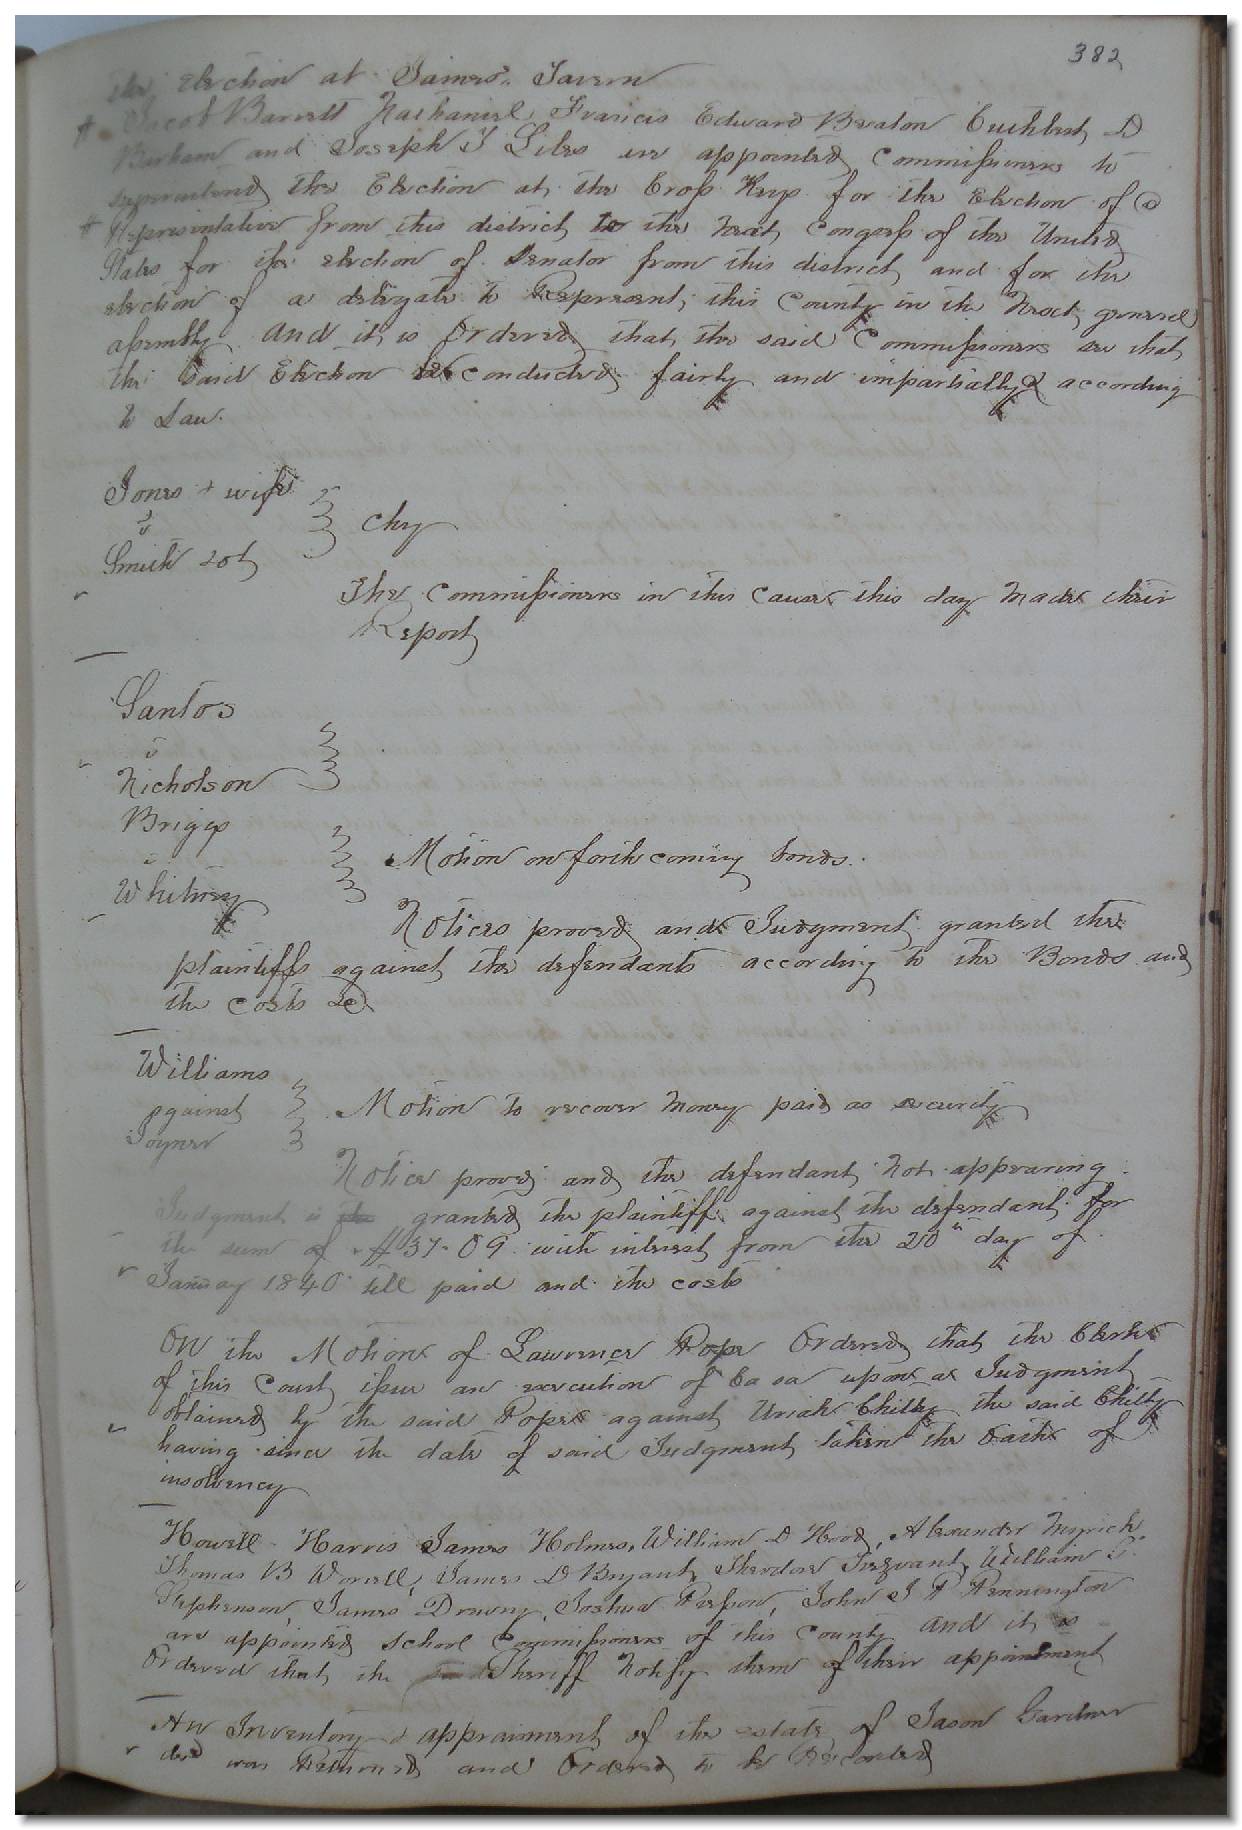 382
the election at James's Tavern
Jacob Barrett Nathaniel Francis Edward Beaton Cuthbert D
Barham and Joseph T Liles are appointed Commissioners to
superintend the Election at the Cross Keys for the Election of a
Representative from this district to the next Congress of the United
States for the election of Senator from this district and for the
election of a delegate to Represent this County in the Next general
assembly and it is Ordered that the said Commissioners see that
the said Election be conducted fairly and impartially & according
to Law.
Jones & wife
v
Smith
Chy
The Commissioners in this Cause this day made their
Report
Santos
v
Nicholson
Briggs
v
Whitney
Motion on forth coming bonds.
Notices proved and Judgment granted the
plaintiffs against the defendants according to the Bonds and
the costs &c
Williams
against
Joyner
Motion to recover money paid as security
Notice proved and the defendant not appearing
Judgment is granted the plaintiff against the defendant for
the sum of $37-09 with interest from the 20th day of
January 1840 till paid and the costs
On the Motion of Lawrence Pope Ordered that the Clerk
of this Court issue an execution of Ca sa upon a Judgment
obtained by the said Pope against Uriah Chitty the said Chitty
having since the date of said Judgment taken the Oath of
insolvency
Howell Harris James Holmes, William D Hood, Alexander Myrick
Thomas B Worrell, James D Bryant, Theodore Trezvant, William
Stephenson, James Drewry, Joshua Pierpon, John J A Pennington
are appointed School Commissioners of this County and it is
Ordered that the Sheriff Notify them of their appointment
An Inventory & appraisment of the estate of Jason Gardner
decd was Returned and Ordered to be Recorded